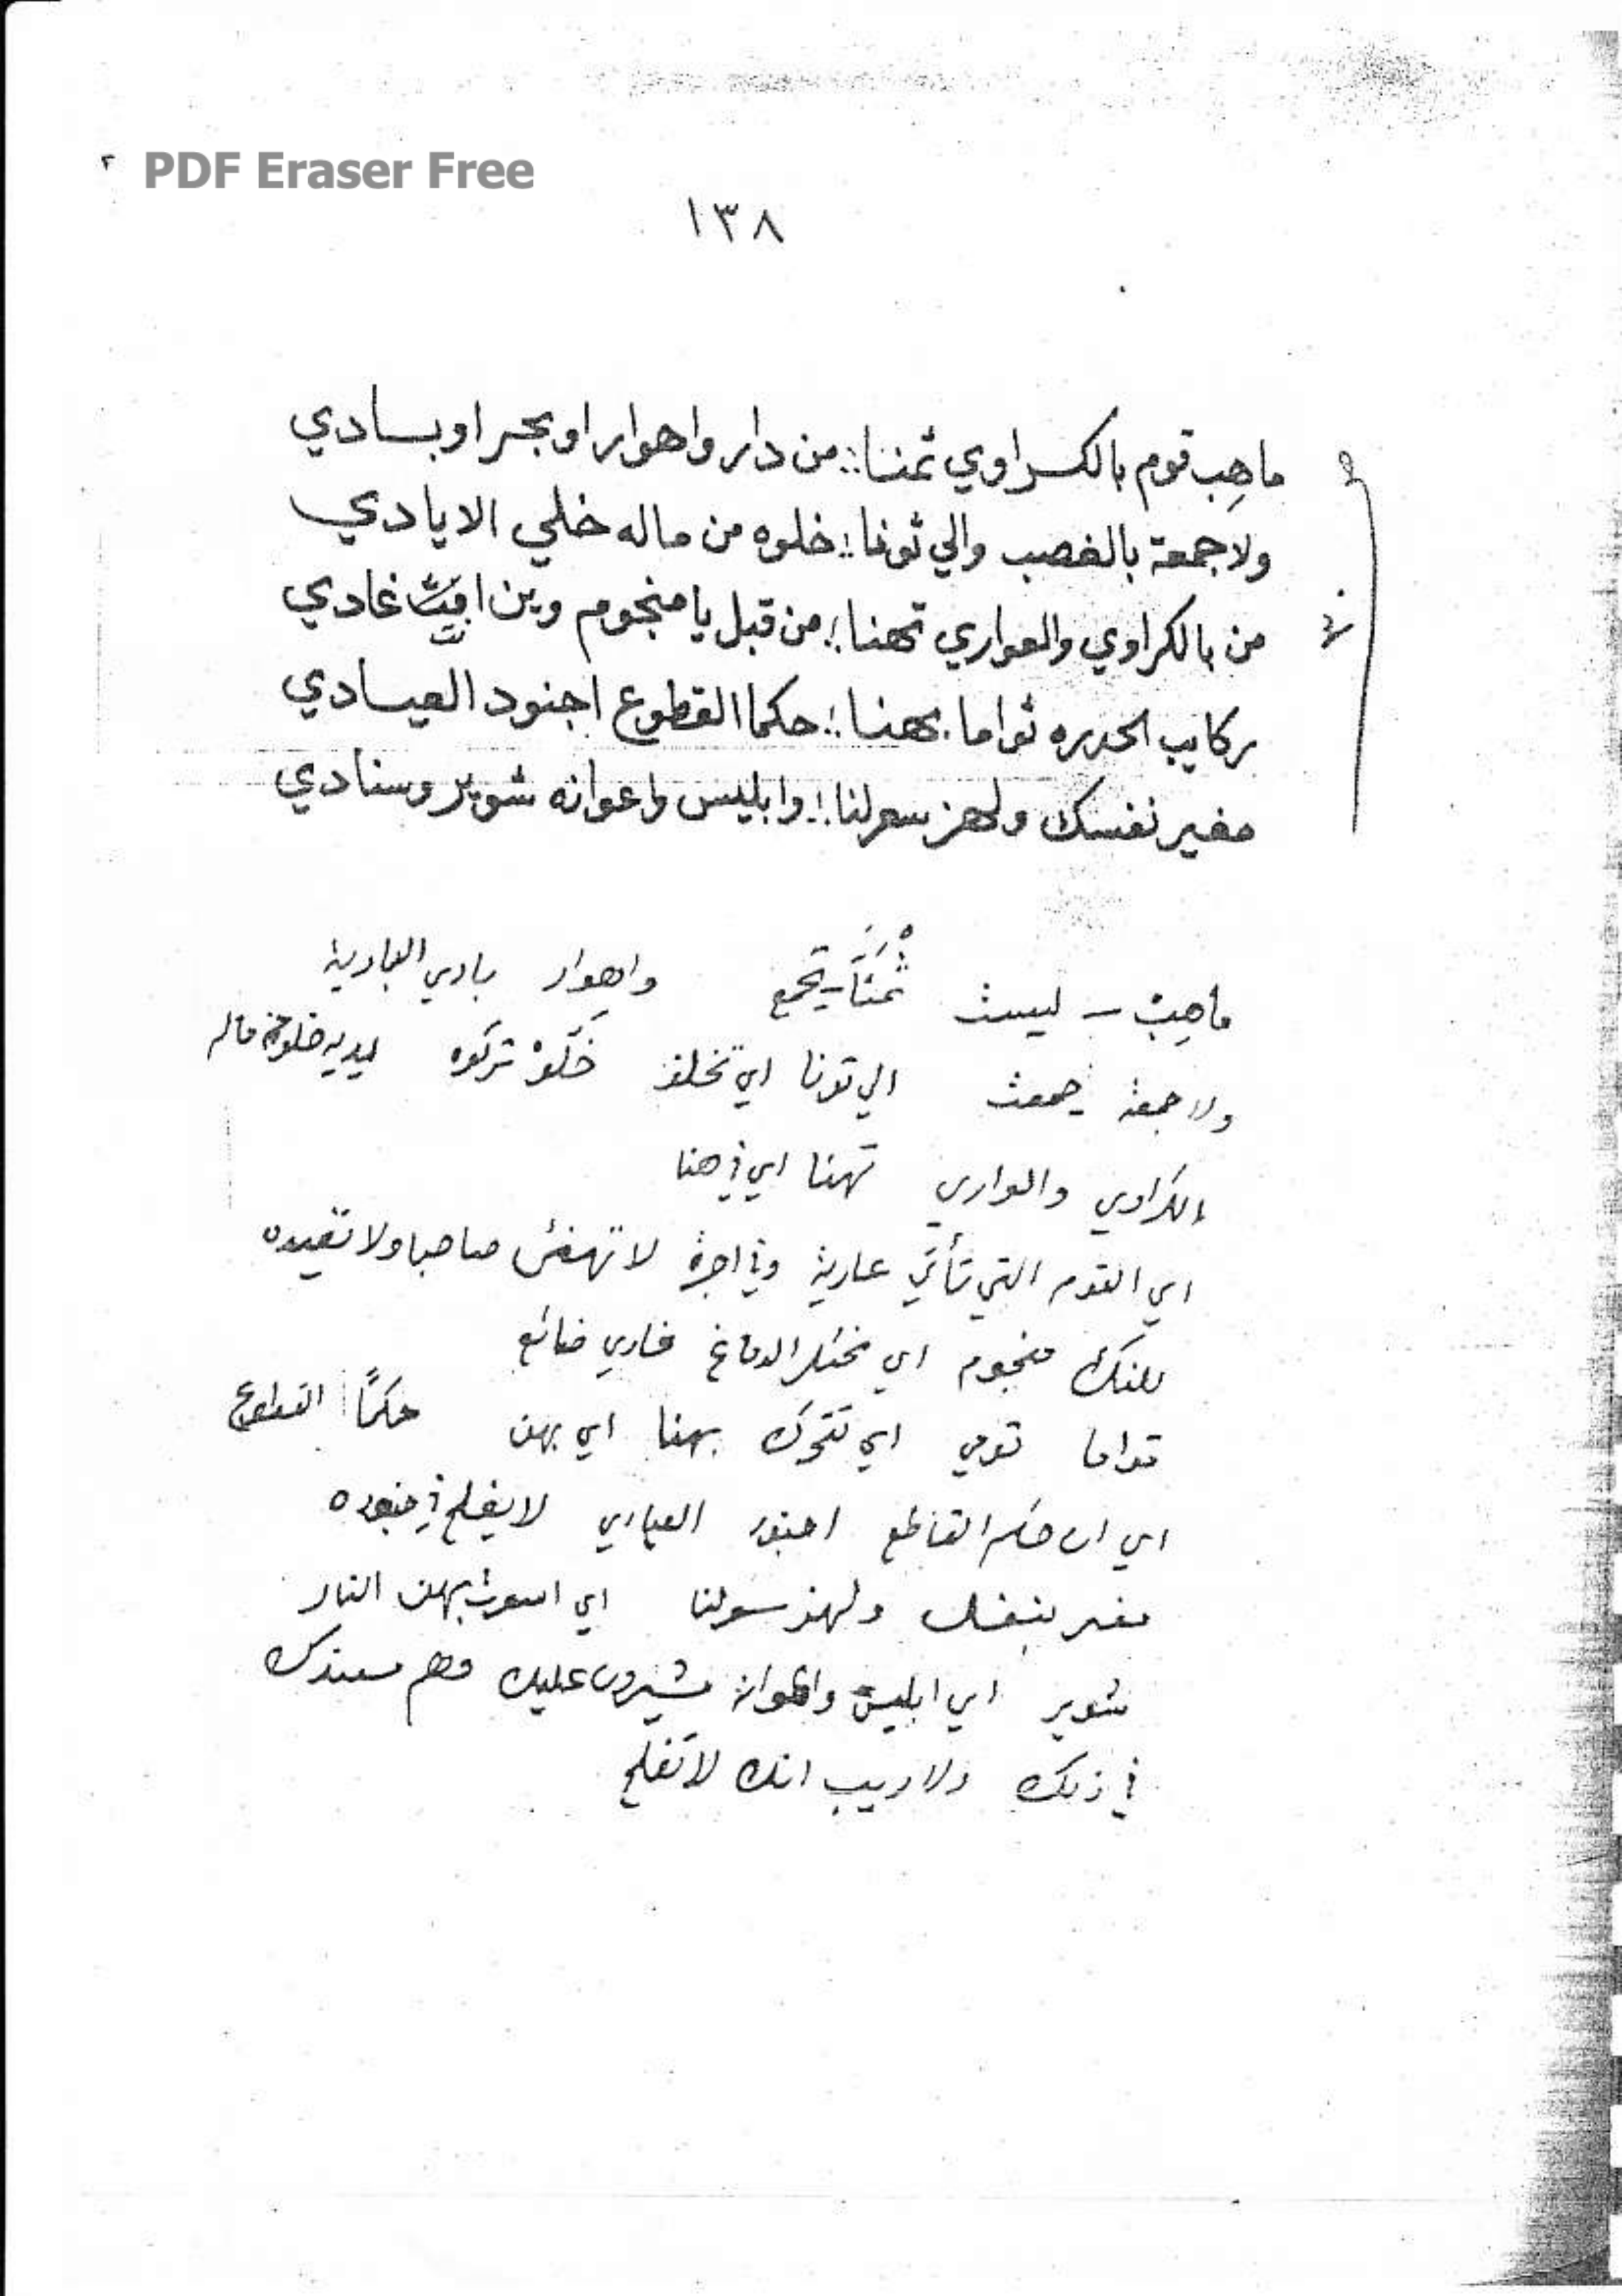 PDF Eraser Free
١٣٨
ماهِب قوم بالكراوي ثمنا :: من دار واهوار او بحر او بسادي
ولا جمعة بالغصب والي ثونا :: خلوه من ماله خلي الايادي
من بالكراوي والعواري تهنا :: من قبل يا منجوم وين اقيت غادي
ركايب الحدره ثواما بهنا :: حكما القطوع اجنود العيسادي
مغير نفسك ولهز سعر لنا :: وابليس واعوانه شوير وسنادي
ماهِبْ – ليست ثمنَا – تجمع واهوار بادي البادية
ولا جمعة جمعت الي تونا اي تخلف خَلَوْ تركوه ماله
الكراوي والعواري تهنا اي في هنا
اي القوم التي تأتي عارية وفي اجرة لا تهنئ صاحبا ولا تفيده
منجوم اي مختل الدماغ غادي ضائع
تواما تومي اي تتحرك بهنا اي بهن حكمًا القطوع
اي ان حكم القاطع اجنود العيادي لا يفلح في جنوده
مغير بنفسك ولهز سولنا اي بهن النار
شوير اي ابليس واعوانه يشيرون عليك وهم سندك
في ذلك ولا ريب انك لا تفلح